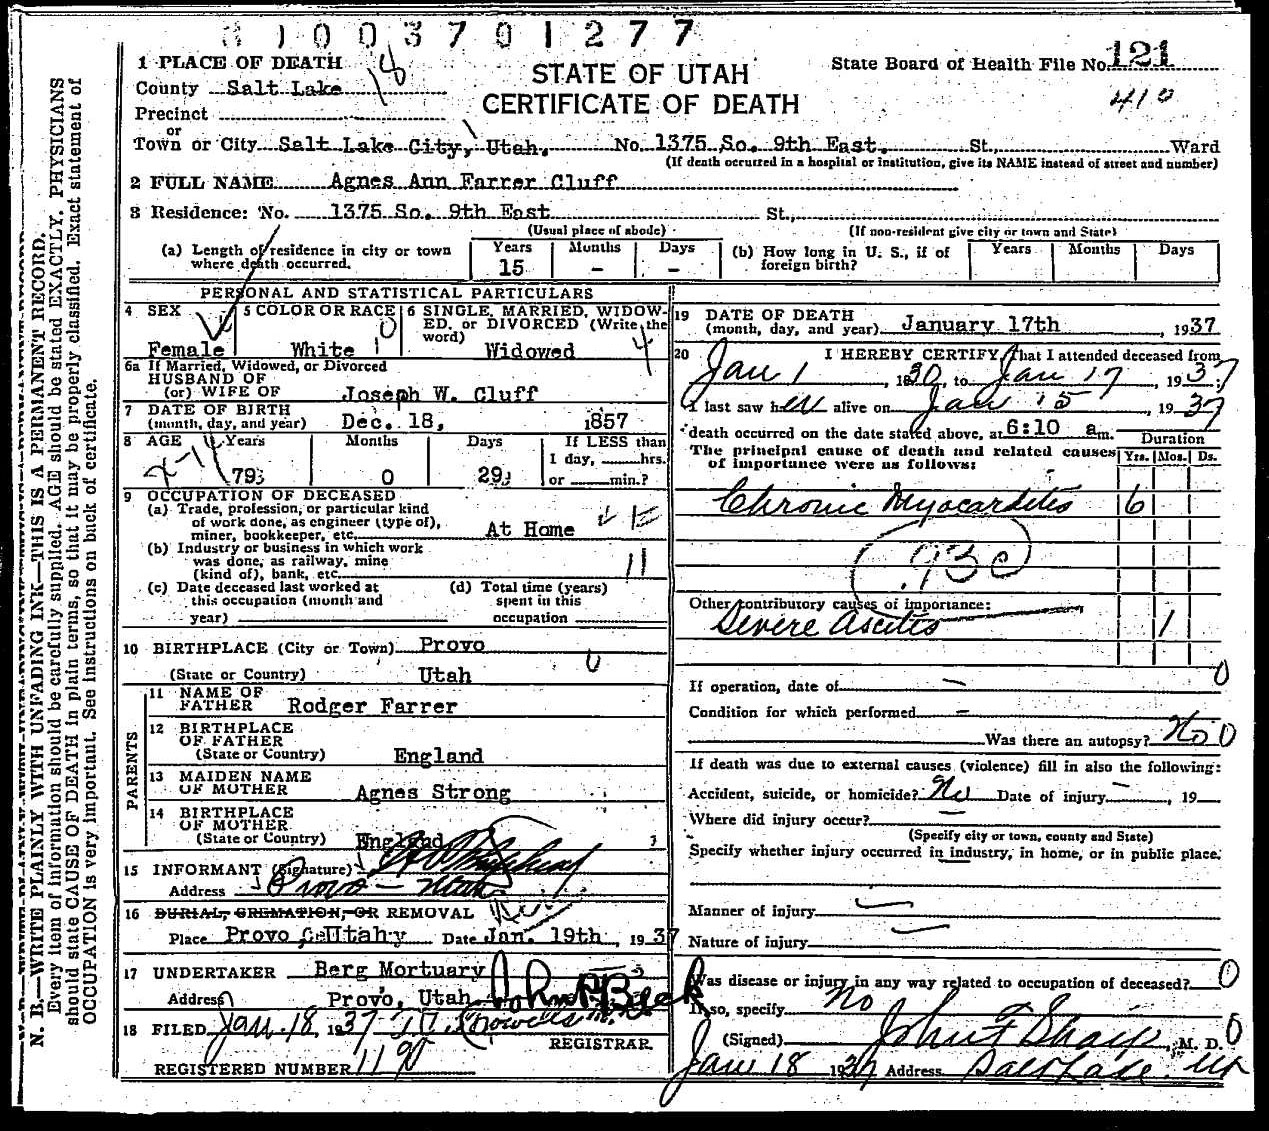 31003701277
1 PLACE OF DEATH
County Salt Lake 18
STATE OF UTAH
CERTIFICATE OF DEATH
State Board of Health File No. 121
410
Precinct
or
Town or City Salt Lake City, Utah. No. 1375 So. 9th East. St., Ward
(If death occurred in a hospital or institution, give its NAME instead of street and number)
2 FULL NAME Agnes Ann Farrer Cluff
3 Residence: No. 1375 So. 9th East St.,
(Usual place of abode) (If non-resident give city or town and State)
(a) Length of residence in city or town where death occurred. Years 15 Months - Days -
(b) How long in U. S., if of foreign birth? Years Months Days
PERSONAL AND STATISTICAL PARTICULARS
4 SEX Female
5 COLOR OR RACE White 0
6 SINGLE, MARRIED, WIDOWED, or DIVORCED (Write the word) Widowed 4
6a If Married, Widowed, or Divorced
HUSBAND OF
(or) WIFE OF Joseph W. Cluff
7 DATE OF BIRTH
(month, day, and year) Dec. 18, 1857
8 AGE Years 79 Months 0 Days 29
If LESS than 1 day, hrs. or min.?
9 OCCUPATION OF DECEASED
(a) Trade, profession, or particular kind
of work done, as engineer (type of),
miner, bookkeeper, etc. At Home
(b) Industry or business in which work
was done, as railway, mine
(kind of), bank, etc. 11
(c) Date deceased last worked at
this occupation (month and
year)
(d) Total time (years)
spent in this
occupation
10 BIRTHPLACE (City or Town) Provo
(State or Country) Utah 0
PARENTS
11 NAME OF
FATHER Rodger Farrer
12 BIRTHPLACE
OF FATHER
(State or Country) England
13 MAIDEN NAME
OF MOTHER Agnes Strong
14 BIRTHPLACE
OF MOTHER
(State or Country) England
15 INFORMANT (Signature)
Address Provo - Utah
16 BURIAL, CREMATION, OR REMOVAL
Place Provo City Utah Date Jan. 19th, 1937
17 UNDERTAKER Berg Mortuary
Address Provo, Utah
18 FILED Jan. 18, 1937
REGISTRAR.
REGISTERED NUMBER 1190
19 DATE OF DEATH
(month, day, and year) January 17th, 1937
20 I HEREBY CERTIFY, That I attended deceased from
Jan 1, 1930, to Jan 17, 1937
I last saw her alive on Jan 15, 1937
death occurred on the date stated above, at 6:10 a.m.
Duration
The principal cause of death and related causes
of importance were as follows: Yrs. Mos. Ds.
Chronic Myocarditis 6
93c
Other contributory causes of importance:
Severe Ascites 1
0
If operation, date of -
Condition for which performed -
Was there an autopsy? No 0
If death was due to external causes (violence) fill in also the following:
Accident, suicide, or homicide? No Date of injury -, 19
Where did injury occur? -
(Specify city or town, county and State)
Specify whether injury occurred in industry, in home, or in public place.
Manner of injury
Nature of injury
Was disease or injury in any way related to occupation of deceased? 0
If so, specify No
(Signed) John F Sharp, M. D. 0
Jan 18 1937 Address Salt Lake Ut
N. B.—WRITE PLAINLY WITH UNFADING INK—THIS IS A PERMANENT RECORD.
Every item of information should be carefully supplied. AGE should be stated EXACTLY. PHYSICIANS
should state CAUSE OF DEATH in plain terms, so that it may be properly classified. Exact statement of
OCCUPATION is very important. See instructions on back of certificate.